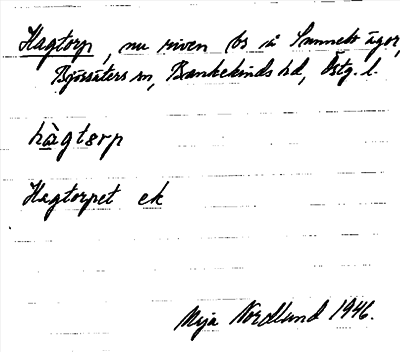 Hagtorp, nu riven bs på Sunnebs ägor,
Björsäters sn, Bankekinds hd, Östg. l.
hàgtorp
Hagtorpet ek
Maja Nordlund 1946.